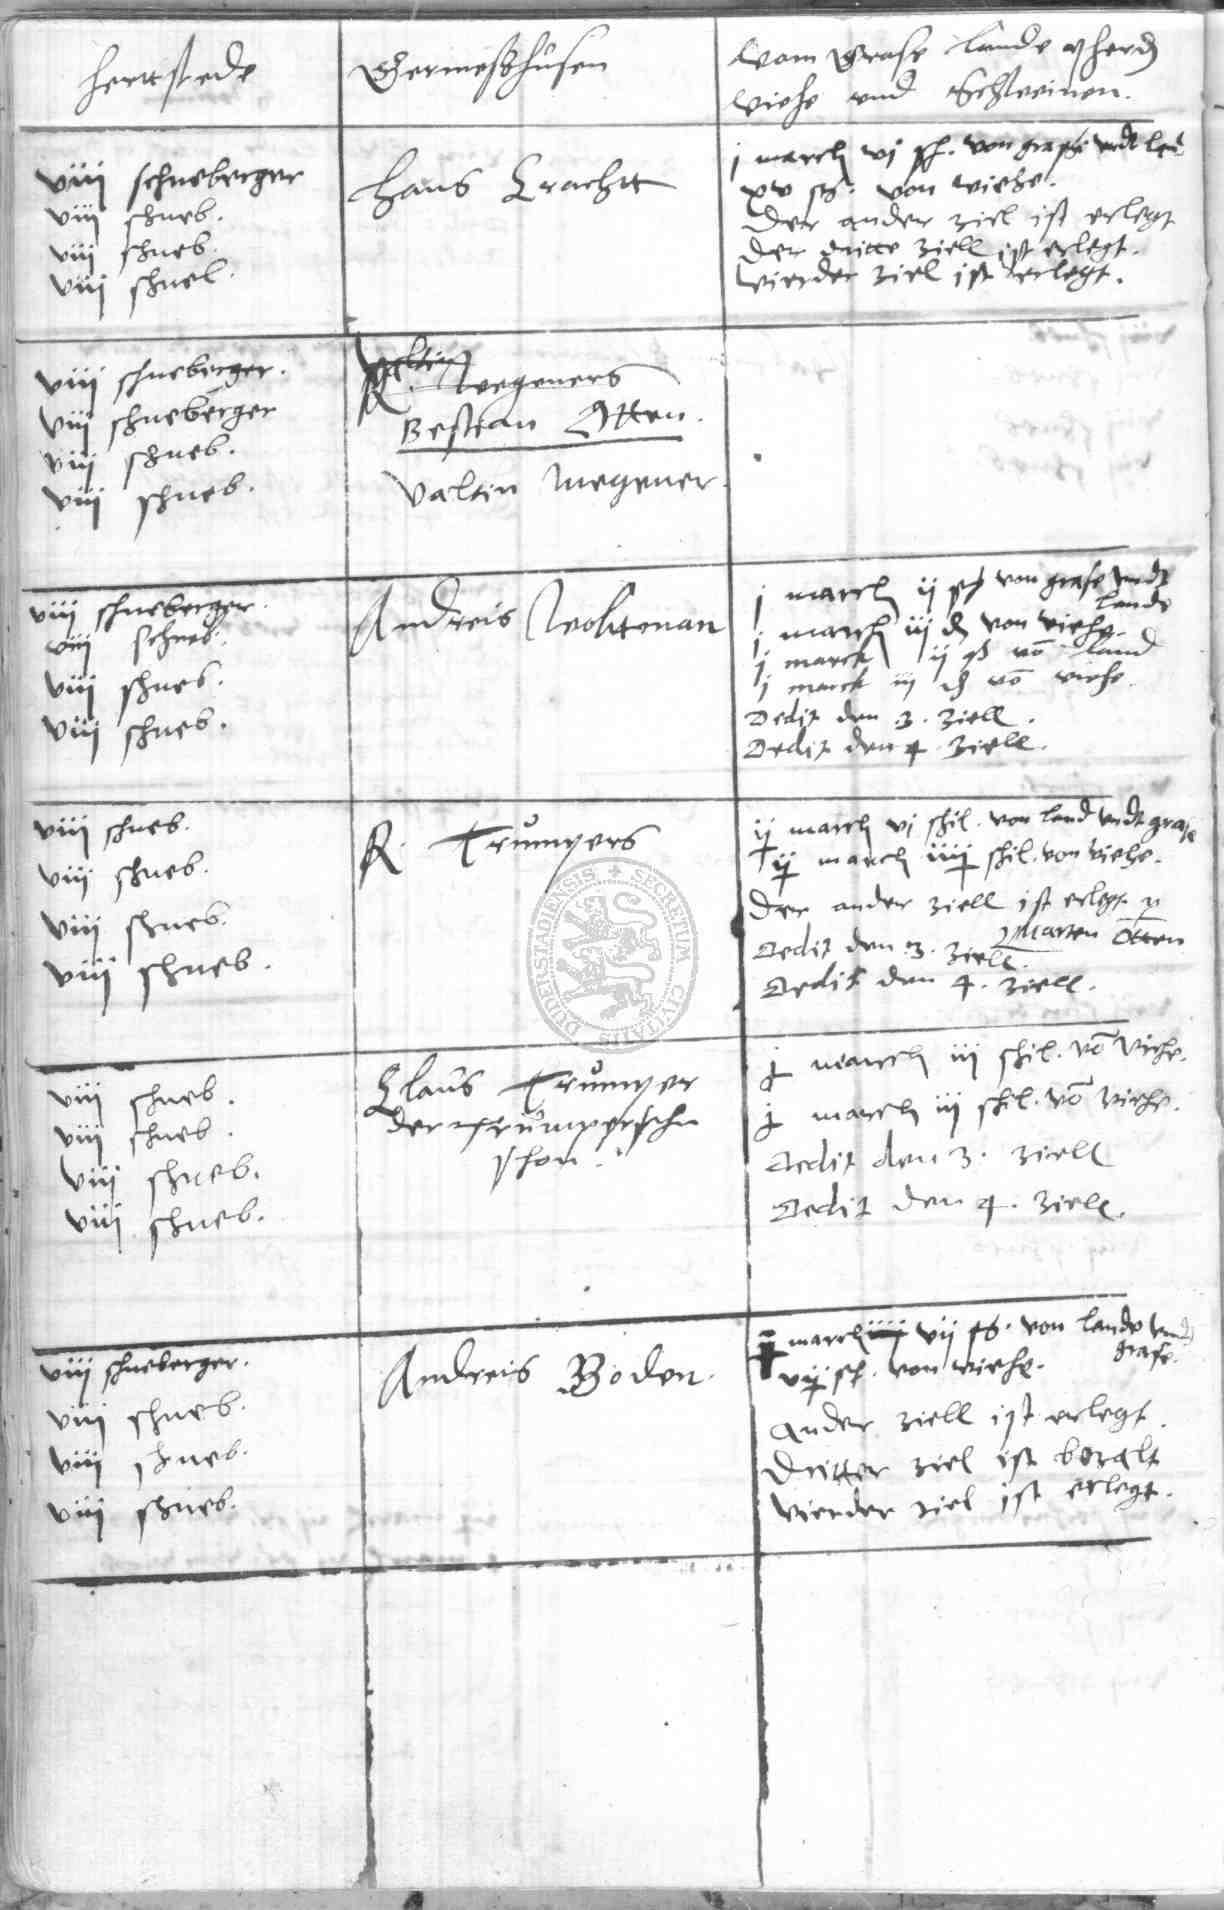 herttstede
Germeßhusen
Vom Grase lande pherd
Viehe vnd Schweinen.
viii schneberger
viii schneb.
viii schneb.
viii schneb.
Hans Crachtt
j march vj sch. von grase vndt land
xv sch. von viehe.
Der ander ziel ist erlegt
Der dritte ziell ist erlegt.
Vierder ziel ist erlegt.
viii schneberger.
viii schneberger
viii schneb.
viii schneb.
Valtin
Wegeners
Bestian Otten.
Valtin Wegener.
viii schneberger.
viii schneb.
viii schneb.
viii schneb.
Andreis Woltman
j march ij sch von grase vndt
lande
j march iij d von viehe.
j marck ij sch vō land
j marck iij d vō viehe.
Dedit den .3. ziell.
Dedit den 4. ziell.
viii schneb.
viii schneb.
viii schneb.
viii schneb.
R. Trůmpers
ij march vj schil. von land vndt grase
ij march iiij schil. von viehe.
Der ander ziell ist erlegt p
Marten Otten
Dedit den .3. ziell.
Dedit den 4. ziell.
viii schneb.
viii schneb.
viii schneb.
viii schneb.
Claus Trůmper
der Trůmperschn
shon.
j march iij schil. vō viehe.
j march iij schil. vō viehe.
Dedit den 3. ziell
Dedit den 4. ziell.
viii schneberger.
viii schneb.
viii schneb.
viii schneb.
Andreis Boden.
j march iiij vij sch. von lande vnd
grase.
vij sch. von viehe.
ander ziell ist erlegt.
Dritter ziel ist bezalt
Vierder ziel ist erlegt.
SECRETUM CIVITATIS DUDERSTADIENSIS